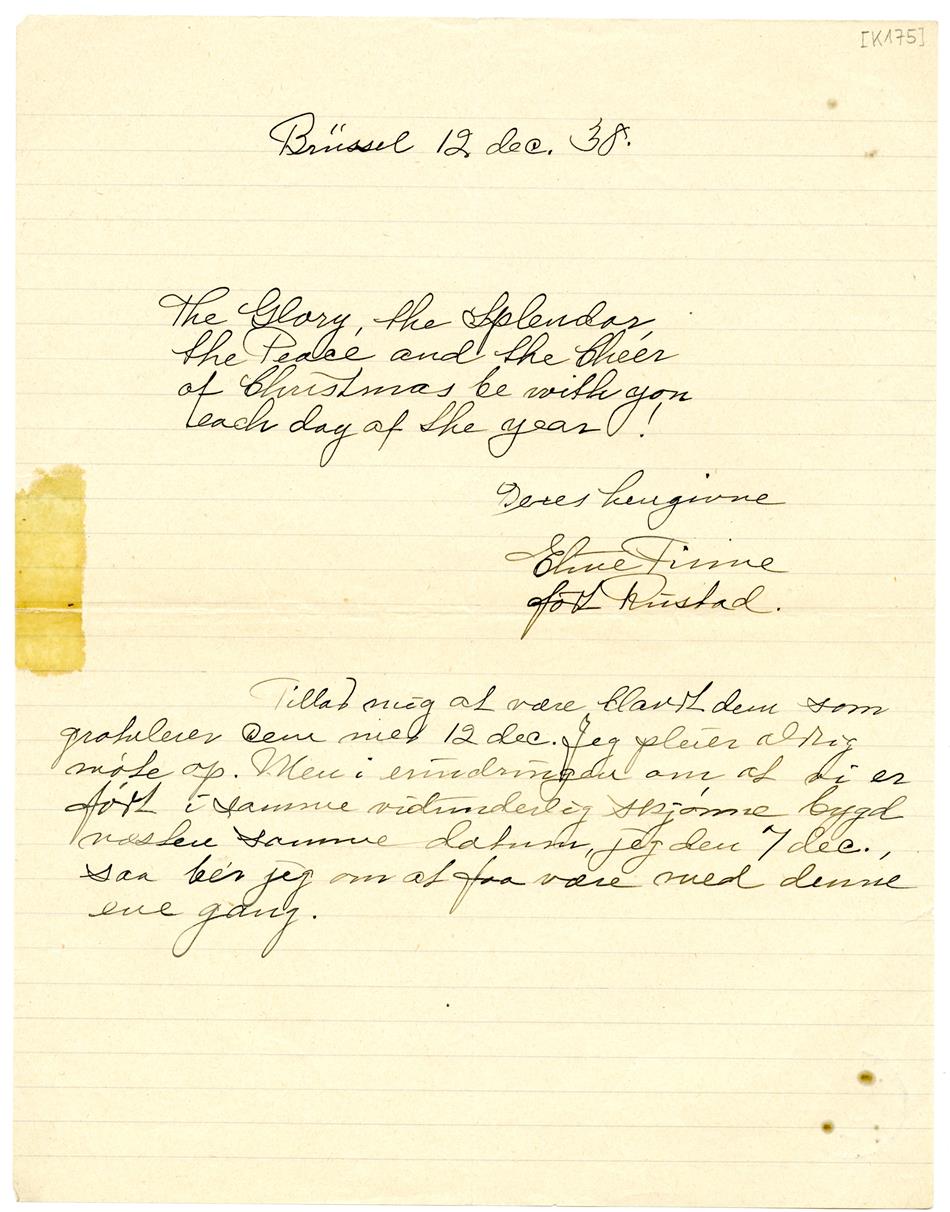 [K175]
Brüssel 12 dec. 38.
The Glory, the Splendor,
the Peace and the Cheer
of Christmas be with you
each day of the year!
Deres hengivne
Eline Finne
født Rustad.
Tillad mig at være blandt dem som
gratulerer dem med 12 dec. Jeg pleier aldrig
møte op. Men i erindringen om at vi er
født i samme vidunderlig skjønne bygd
næsten samme datum, jeg den 7 dec.,
saa ber jeg om at faa være med denne
ene gang.